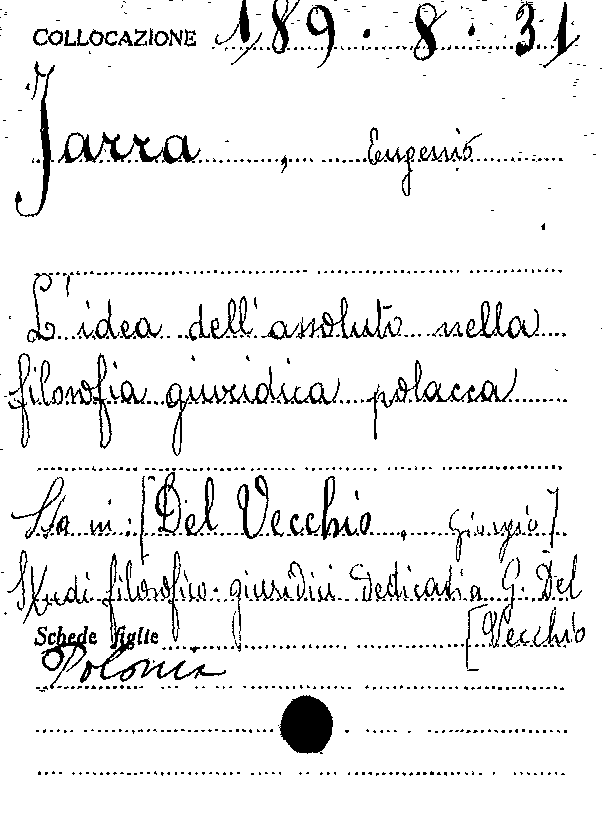 COLLOCAZIONE 189.8.31
Jarra, Eugenio
L'idea dell'assoluto nella
filosofia giuridica polacca
Sta in: [Del Vecchio, Giorgio]
Studi filosofico-giuridici dedicati a G. Del
[Vecchio
Schede figlie
Polonia